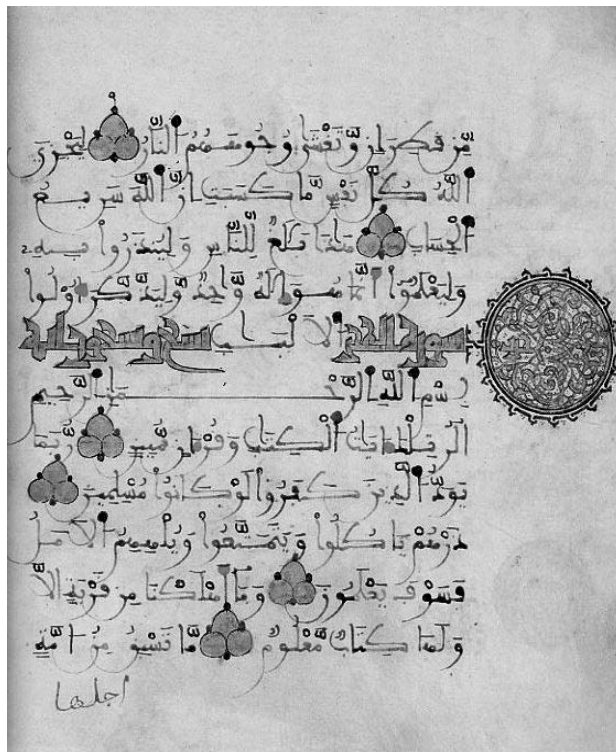 مِّن قَطِرَانٍ وَّتَغْشَىٰ وُجُوهَهُمُ النَّارُ لِيَجْزِيَ
اللَّهُ كُلَّ نَفْسٍ مَّا كَسَبَتْ إِنَّ اللَّهَ سَرِيعُ
الْحِسَابِ هَٰذَا بَلَٰغٌ لِّلنَّاسِ وَلِيُنذَرُوا بِهِ
وَلِيَعْلَمُوا أَنَّمَا هُوَ إِلَٰهٌ وَّٰحِدٌ وَّلِيَذَّكَّرَ أُوْلُوا
سورة الحجر الْأَلْبَٰبِ تسع وتسعون آية
بِسْمِ اللَّهِ الرَّحْمَٰنِ الرَّحِيمِ
الٓر تِلْكَ ءَايَٰتُ الْكِتَٰبِ وَقُرْءَانٍ مُّبِينٍ رُّبَمَا
يَوَدُّ الَّذِينَ كَفَرُوا لَوْ كَانُوا مُسْلِمِينَ
ذَرْهُمْ يَأْكُلُوا وَيَتَمَتَّعُوا وَيُلْهِهِمُ الْأَمَلُ
فَسَوْفَ يَعْلَمُونَ وَمَا أَهْلَكْنَا مِن قَرْيَةٍ إِلَّا
وَلَهَا كِتَابٌ مَّعْلُومٌ مَّا تَسْبِقُ مِنْ أُمَّةٍ
اجلها